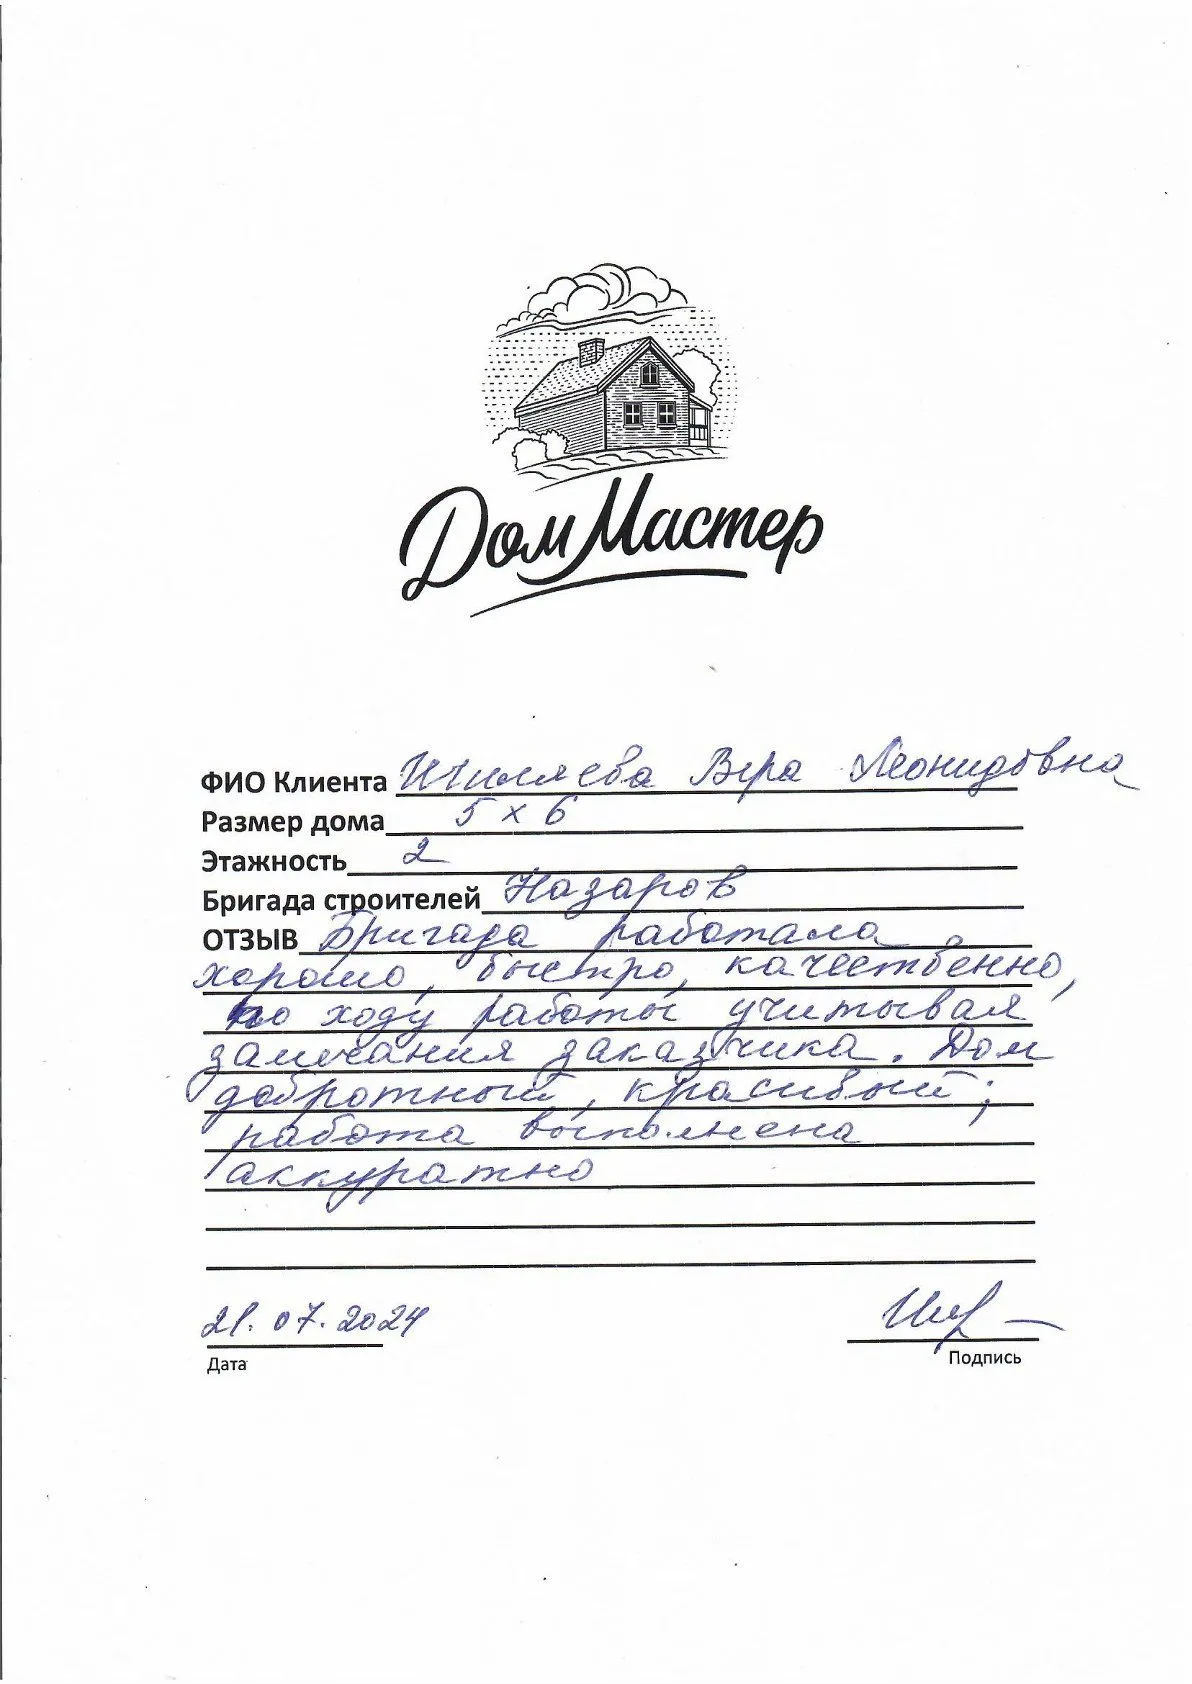 Дом Мастер
ФИО Клиента Шиляева Вера Леонидовна
Размер дома 5 x 6
Этажность 2
Бригада строителей Назаров
ОТЗЫВ Бригада работала
хорошо, быстро, качественно,
по ходу работы учитывая
замечания заказчика. Дом
добротный, красивый;
работа выполнена
аккуратно
21.07.2024
Дата
Подпись